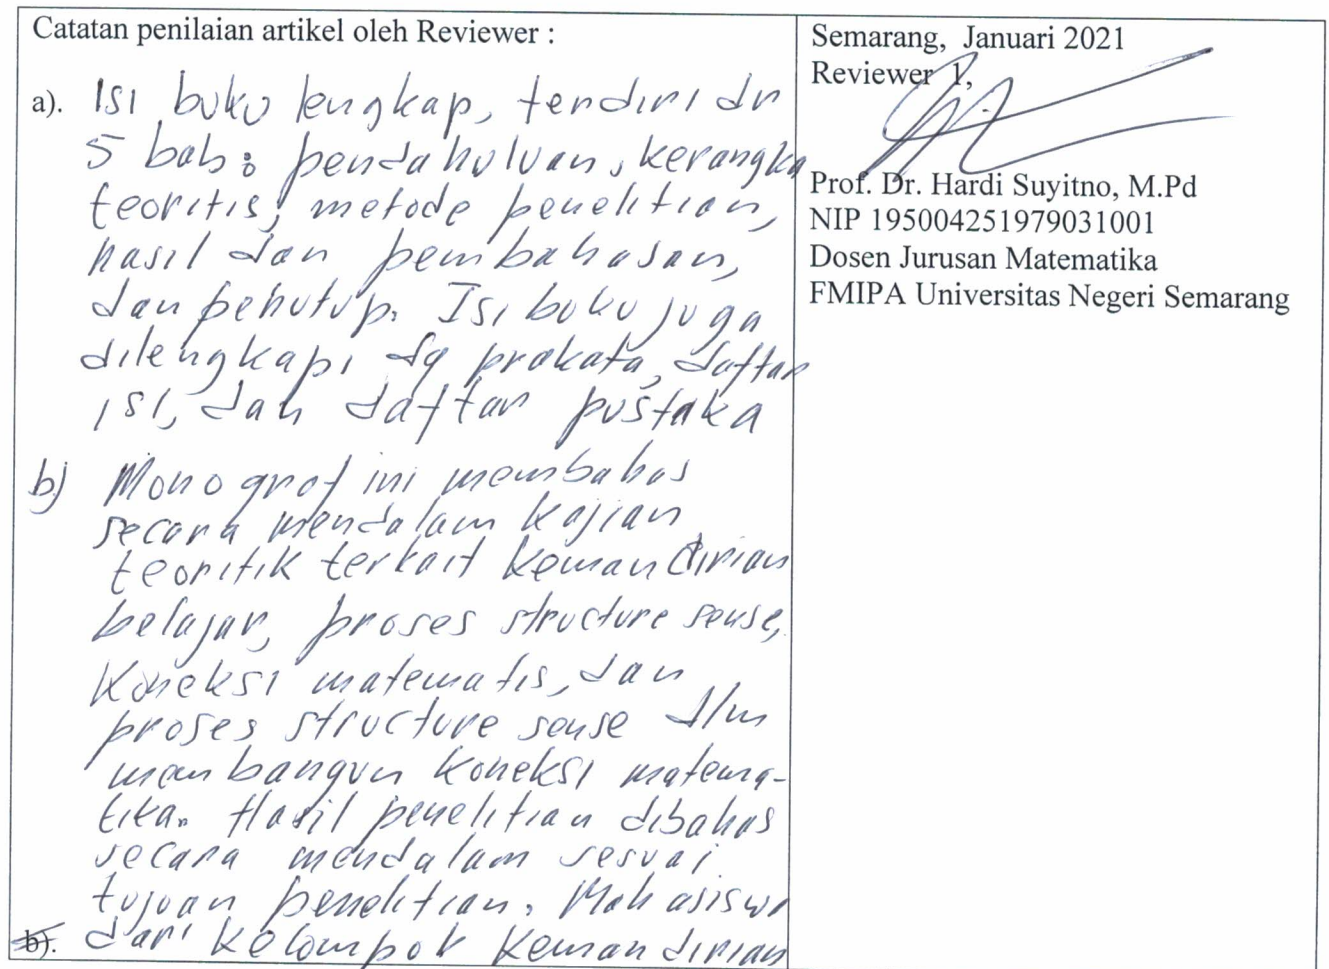 Catatan penilaian artikel oleh Reviewer :
a). Isi buku lengkap, terdiri dr
5 bab: pendahuluan, kerangka
teoritis, metode penelitian,
hasil dan pembahasan,
dan penutup. Isi buku juga
dilengkapi dg prakata, daftar
isi, dan daftar pustaka
b) Monograf ini membahas
secara mendalam kajian
teoritik terkait kemandirian
belajar, proses structure sense,
koneksi matematis, dan
proses structure sense dlm
membangun koneksi matema-
tika. Hasil penelitian dibahas
secara mendalam sesuai
tujuan penelitian. Mahasiswa
b). dari kelompok kemandirian
Semarang, Januari 2021
Reviewer 1,
Prof. Dr. Hardi Suyitno, M.Pd
NIP 195004251979031001
Dosen Jurusan Matematika
FMIPA Universitas Negeri Semarang